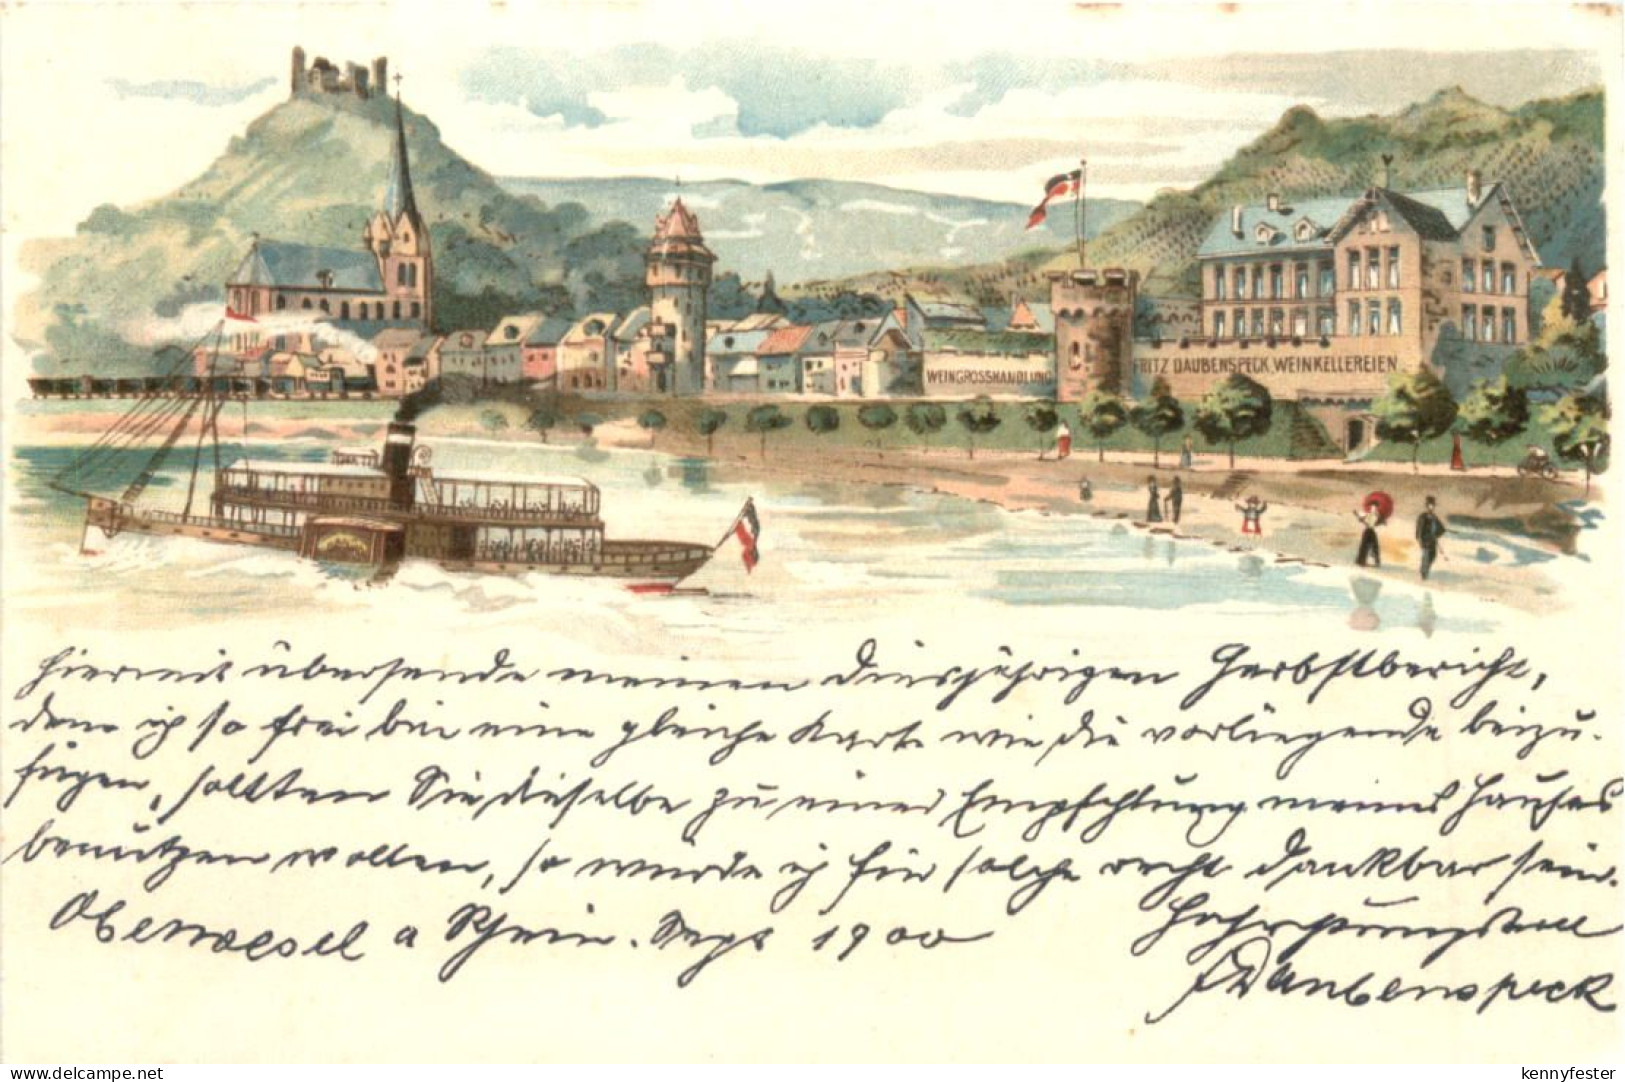 WEINGROSSHANDLUNG
FRITZ DAUBENSPECK, WEINKELLEREIEN.
Hiermit übersende meinen diesjährigen Herbstbericht,
dem ich so frei bin eine gleiche Karte wie die vorliegende beizu-
fügen, sollten Sie dieselbe zu einer Empfehlung meines Hauses
benützen wollen, so würde ich für solche recht dankbar sein.
Oberwesel a Rhein. Sept 1900
Hochachtungsvoll
F Daubenspeck
www.delcampe.net
kennyfester